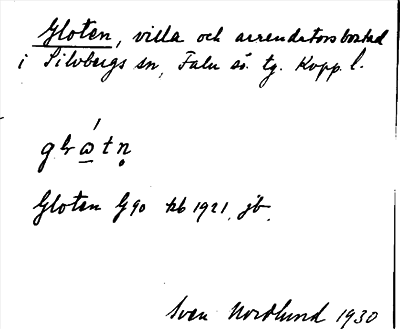 Gloten, villa och arrendatorsbostad
i Silvbergs sn, Falu sö. tg. Kopp. l.
Gloten G90 kb 1921, jb.
Sven Nordlund 1930